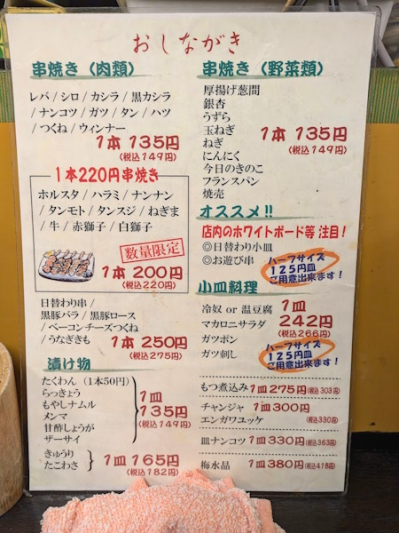 おしながき
串焼き（肉類）
レバ / シロ / カシラ / 黒カシラ
/ ナンコツ / ガツ / タン / ハツ
/ つくね / ウィンナー
1本 135円
(税込149円)
1本220円串焼き
ホルスタ / ハラミ / ナンナン
/ タンモト / タンスジ / ねぎま
/ 牛 / 赤獅子 / 白獅子
数量限定
1本 200円
(税込220円)
日替わり串 /
黒豚バラ / 黒豚ロース
/ ベーコンチーズつくね
/ うなぎきも
1本 250円
(税込275円)
漬け物
たくわん（1本50円）
らっきょう
もやしナムル
メンマ
甘酢しょうが
ザーサイ
1皿
135円
(税込149円)
きゅうり
たこわさ
1皿 165円
(税込182円)
串焼き（野菜類）
厚揚げ葱間
銀杏
うずら
玉ねぎ
ねぎ
にんにく
今日のきのこ
フランスパン
焼売
1本 135円
(税込149円)
オススメ!!
店内のホワイトボード等 注目！
◎日替わり小皿
◎お遊び串
ハーフサイズ
125円皿
ご用意出来ます！
小皿料理
冷奴 or 温豆腐
マカロニサラダ
ガツポン
ガツ刺し
1皿
242円
(税込266円)
ハーフサイズ
125円皿
ご用意出来ます！
もつ煮込み 1皿275円(税込303円)
チャンジャ 1皿300円
エンガワユッケ (税込330円)
皿ナンコツ 1皿330円(税込363円)
梅水晶 1皿380円(税込418円)